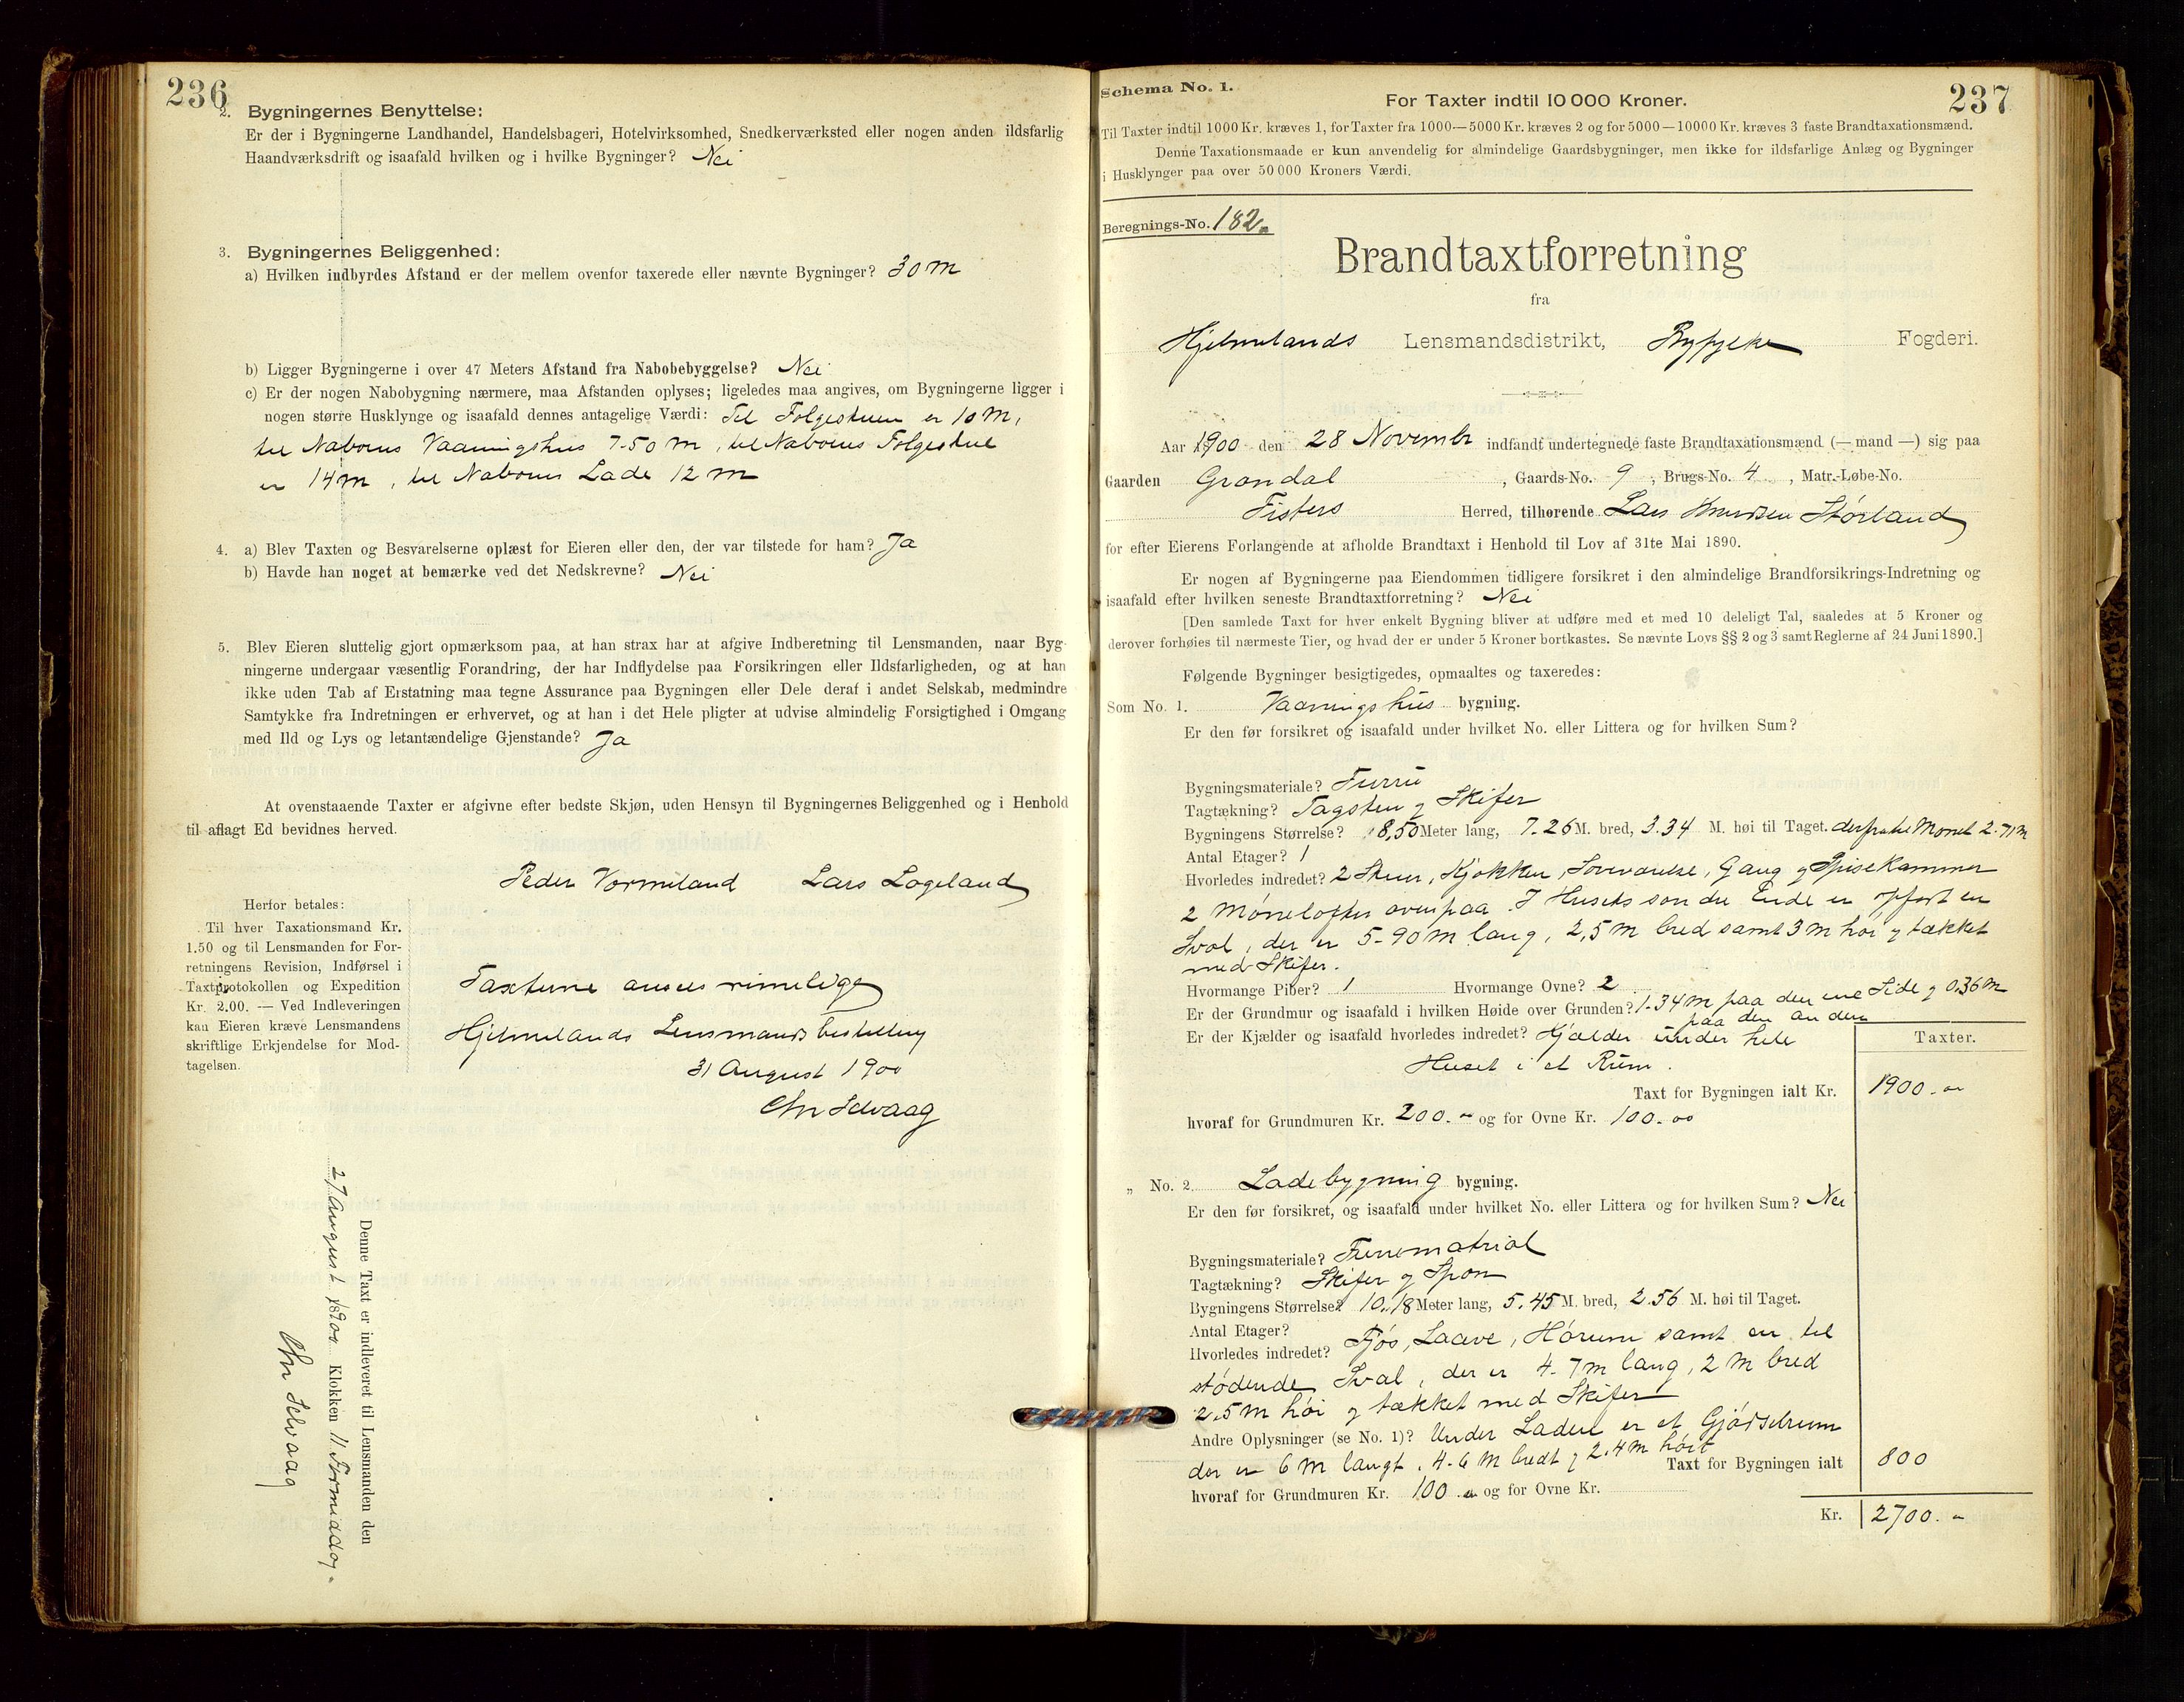 236
2. Bygningernes Benyttelse:
Er der i Bygningerne Landhandel, Handelsbageri, Hotelvirksomhed, Snedkerværksted eller nogen anden ildsfarlig
Haandværksdrift og isaafald hvilken og i hvilke Bygninger? Nei
3. Bygningernes Beliggenhed:
a) Hvilken indbyrdes Afstand er der mellem ovenfor taxerede eller nævnte Bygninger? 30 m
b) Ligger Bygningerne i over 47 Meters Afstand fra Nabobebyggelse? Nei
c) Er der nogen Nabobygning nærmere, maa Afstanden oplyses; ligeledes maa angives, om Bygningerne ligger i
nogen større Husklynge og isaafald dennes antagelige Værdi: Til Folgestuen er 10 M,
til Naboens Vaaningshus 7-50 m, til Naboens Folgestue
er 14 m, til Naboens Lade 12 m
4. a) Blev Taxten og Besvarelserne oplæst for Eieren eller den, der var tilstede for ham? Ja
b) Havde han noget at bemærke ved det Nedskrevne? Nei
5. Blev Eieren sluttelig gjort opmærksom paa, at han strax har at afgive Indberetning til Lensmanden, naar Byg-
ningerne undergaar væsentlig Forandring, der har Indflydelse paa Forsikringen eller Ildsfarligheden, og at han
ikke uden Tab af Erstatning maa tegne Assurance paa Bygningen eller Dele deraf i andet Selskab, medmindre
Samtykke fra Indretningen er erhvervet, og at han i det Hele pligter at udvise almindelig Forsigtighed i Omgang
med Ild og Lys og letantændelige Gjenstande? Ja
At ovenstaaende Taxter er afgivne efter bedste Skjøn, uden Hensyn til Bygningernes Beliggenhed og i Henhold
til aflagt Ed bevidnes herved.
Peder Vormeland Lars Lageland
Herfor betales:
Til hver Taxationsmand Kr.
1.50 og til Lensmanden for For-
retningens Revision, Indførsel i
Taxtprotokollen og Expedition
Kr. 2.00. — Ved Indleveringen
kan Eieren kræve Lensmandens
skriftlige Erkjendelse for Mod-
tagelsen.
Taxterne ansees rimelige
Hjelmelands Lensmandsbestilling
31 August 1900
Chr Selvaag
Denne Taxt er indleveret til Lensmanden den
27 August 1900 Klokken 11 Formiddag.
Chr Selvaag
Schema No. 1.
237
For Taxter indtil 10 000 Kroner.
Til Taxter indtil 1000 Kr. kræves 1, for Taxter fra 1000—5000 Kr. kræves 2 og for 5000—10000 Kr. kræves 3 faste Brandtaxationsmænd.
Denne Taxationsmaade er kun anvendelig for almindelige Gaardsbygninger, men ikke for ildsfarlige Anlæg og Bygninger
i Husklynger paa over 50 000 Kroners Værdi.
Beregnings-No. 182
Brandtaxtforretning
fra
Hjelmelands Lensmandsdistrikt, Ryfylke Fogderi.
Aar 1900 den 28 Novembr indfandt undertegnede faste Brandtaxationsmænd (— mand —) sig paa
Gaarden Grøndal, Gaards-No. 9, Brugs-No. 4, Matr.-Løbe-No.
Fisters Herred, tilhørende Lars Knudsen Størland
for efter Eierens Forlangende at afholde Brandtaxt i Henhold til Lov af 31te Mai 1890.
Er nogen af Bygningerne paa Eiendommen tidligere forsikret i den almindelige Brandforsikrings-Indretning og
isaafald efter hvilken seneste Brandtaxtforretning? Nei
[Den samlede Taxt for hver enkelt Bygning bliver at udføre med et med 10 deleligt Tal, saaledes at 5 Kroner og
derover forhøies til nærmeste Tier, og hvad der er under 5 Kroner bortkastes. Se nævnte Lovs §§ 2 og 3 samt Reglerne af 24 Juni 1890.]
Følgende Bygninger besigtigedes, opmaaltes og taxeredes:
Som No. 1. Vaaningshus bygning.
Er den før forsikret og isaafald under hvilket No. eller Littera og for hvilken Sum?
Bygningsmateriale? Furru
Tagtækning? Tagsten og Skifer
Bygningens Størrelse? 8,50 Meter lang, 7.26 M. bred, 3.34 M. høi til Taget. derfra til Mønet 2.71 m
Antal Etager? 1
Hvorledes indredet? 2 Stuer, Kjøkken, Soveværelse, Gang og Spisekammer
2 Mønelofter ovenpaa. I Husets søndre Ende er opført en
Sval, der er 5-90 m lang, 2,5 m bred samt 3 m høi og tækket
med Skifer.
Hvormange Piber? 1 Hvormange Ovne? 2
Er der Grundmur og isaafald i hvilken Høide over Grunden? 1.34 m paa den ene Side og 0,36 m
paa den anden
Er der Kjælder og isaafald hvorledes indredet? Kjælder under hele
Huset i et Rum.
Taxter.
Taxt for Bygningen ialt Kr. 1900.00
hvoraf for Grundmuren Kr. 200.- og for Ovne Kr. 100.00
„ No. 2. Ladebygning bygning.
Er den før forsikret, og isaafald under hvilket No. eller Littera og for hvilken Sum? Nei
Bygningsmateriale? Furrematrial
Tagtækning? Skifer og Spon
Bygningens Størrelse? 10.18 Meter lang, 5.45 M. bred, 2.56 M. høi til Taget.
Antal Etager?
Hvorledes indredet? Fjøs, Laave, Hørum samt en til
stødende Sval, der er 4.7 m lang, 2 m bred
2,5 m høi og tækket med Skifer
Andre Oplysninger (se No. 1)? Under Laden er et Gjødselrum
der er 6 m langt, 4.6 m bredt og 2.4 m høit
Taxt for Bygningen ialt 800
hvoraf for Grundmuren Kr. 100 og for Ovne Kr.
Kr. 2700.-